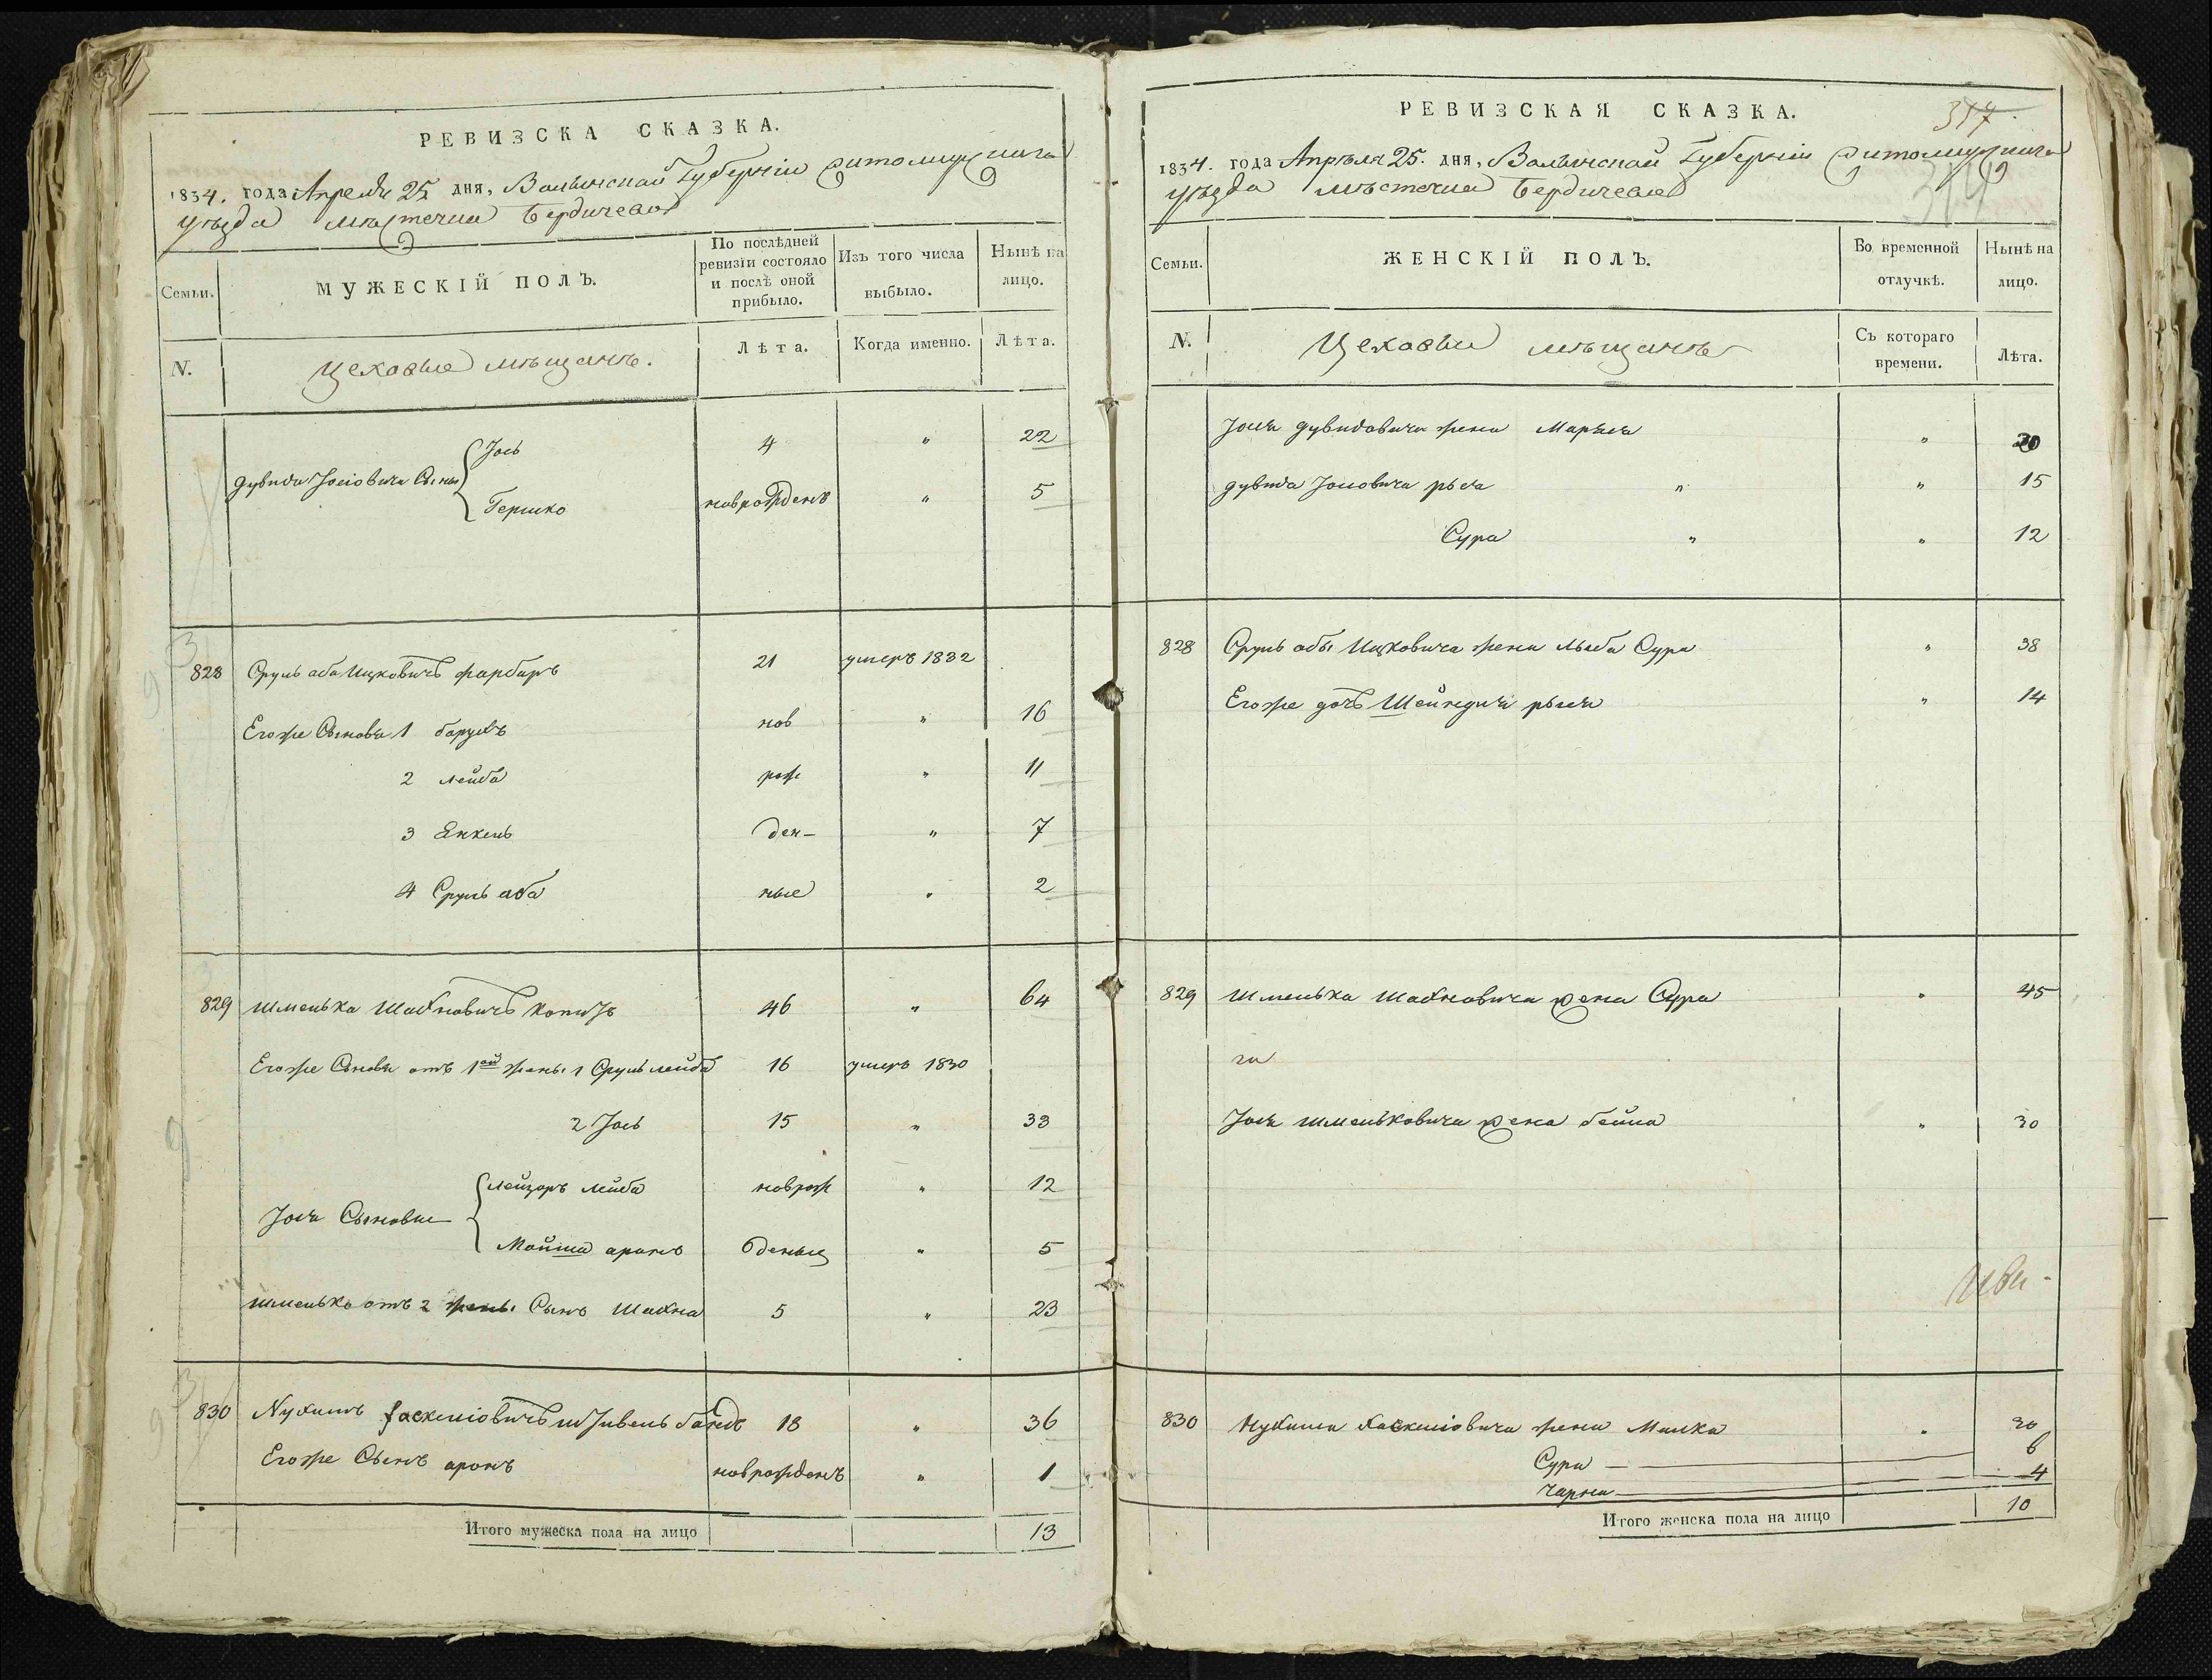 РЕВИЗСКА СКАЗКА.
1834. года Апреля 25 дня, Волынской Губерніи Житомирскаго
уѣзда мѣстечка Бердичева
Семьи.
МУЖЕСКІЙ ПОЛЪ.
По послѣдней
ревизіи состояло
и послѣ оной
прибыло.
Изъ того числа
выбыло.
Нынѣ на
лицо.
N.
Цеховые мѣщанъ.
Лѣта.
Когда именно.
Лѣта.
Дувида Іосіовича Сыны
Іось 4 " 22
Гершко новрожденъ " 5
828 Сруль аба Ицковичъ фарбаръ 21 умеръ 1832
Егоже Сыновя 1 барухъ нов " 16
2 лейба рож " 11
3 Янкель ден- " 7
4 Сруль аба ные " 2
829 Шмелька Шахновичъ 46 " 64
Егоже Сыновя отъ 1ой жены 1 Сруль лейба 16 умеръ 1830
2 Іось 15 " 33
Іося Сыновя
лейзоръ лейба новрож " 12
Мойша аронъ деные " 5
шмелько отъ 2 жены Сынъ Шахна 5 " 23
830 Нухимъ Хаскеліовичъ 18 " 36
Егоже Сынъ аронъ новрожденъ " 1
Итого мужеска пола на лицо 13
РЕВИЗСКАЯ СКАЗКА.
317
1834. года Апрѣля 25. дня, Волынской Губерніи Житомирскаго
уѣзда мѣстечка Бердичева
Семьи.
ЖЕНСКІЙ ПОЛЪ.
Во временной
отлучкѣ.
Нынѣ на
лицо.
N.
Цеховыи мѣщанъ
Съ котораго
времени.
Лѣта.
Іося дувидовича жена Марьяся " 20
дувида Іосіовича рыся " " 15
Сура " " 12
828 Сруль абы Ицковича жена Сура " 38
Егоже дочъ Шейндля рыся " 14
829 Шмелька Шахновича жена Сура " 45
Іося шмельковича жена бейла " 30
830 Нухима Хаскеліовича жена Малка " 30
Сура 6
Чарна 4
Итого женска пола на лицо 10